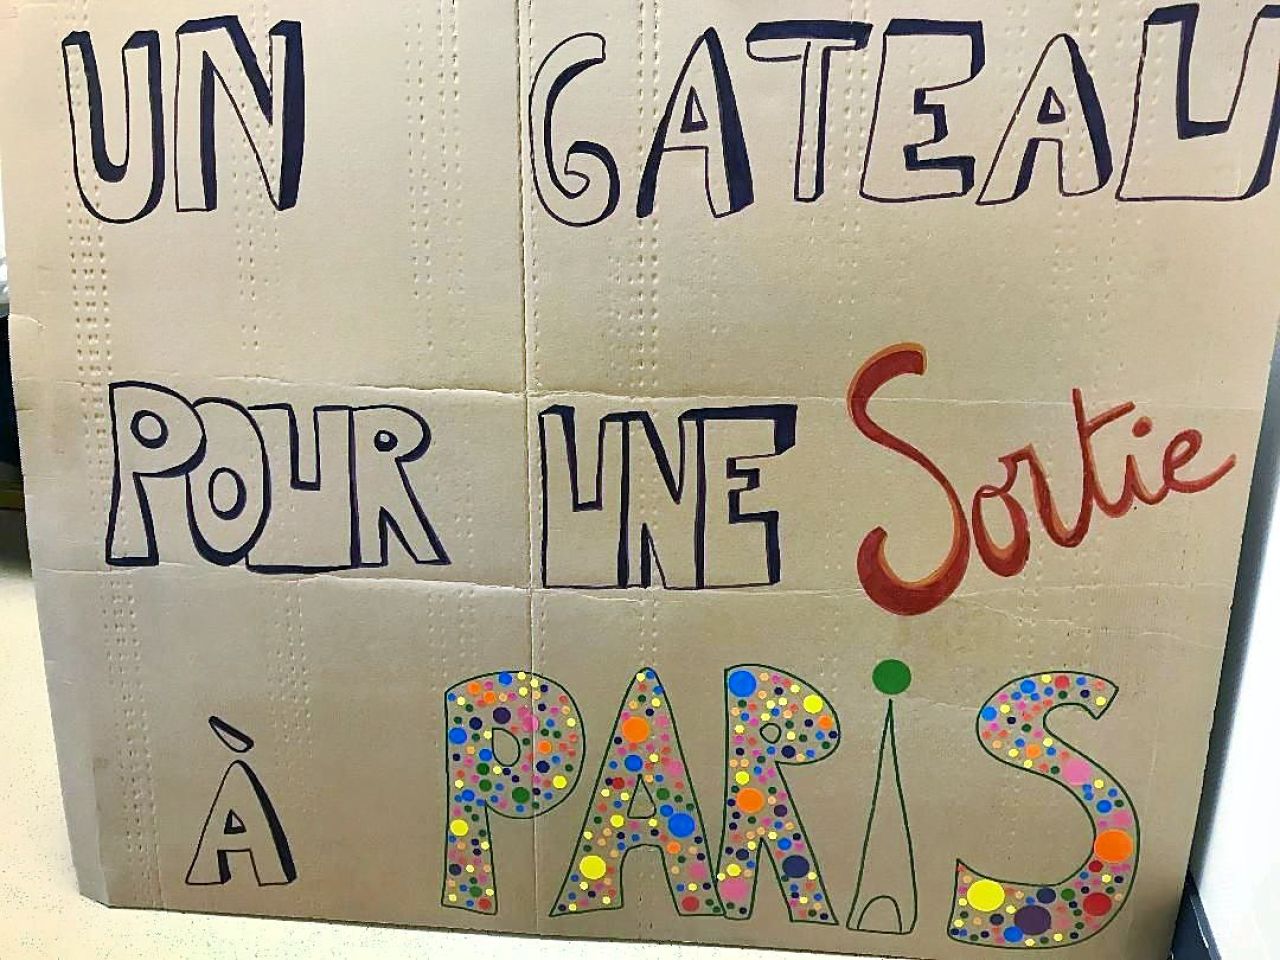 UN GATEAU
POUR UNE Sortie
À PARiS